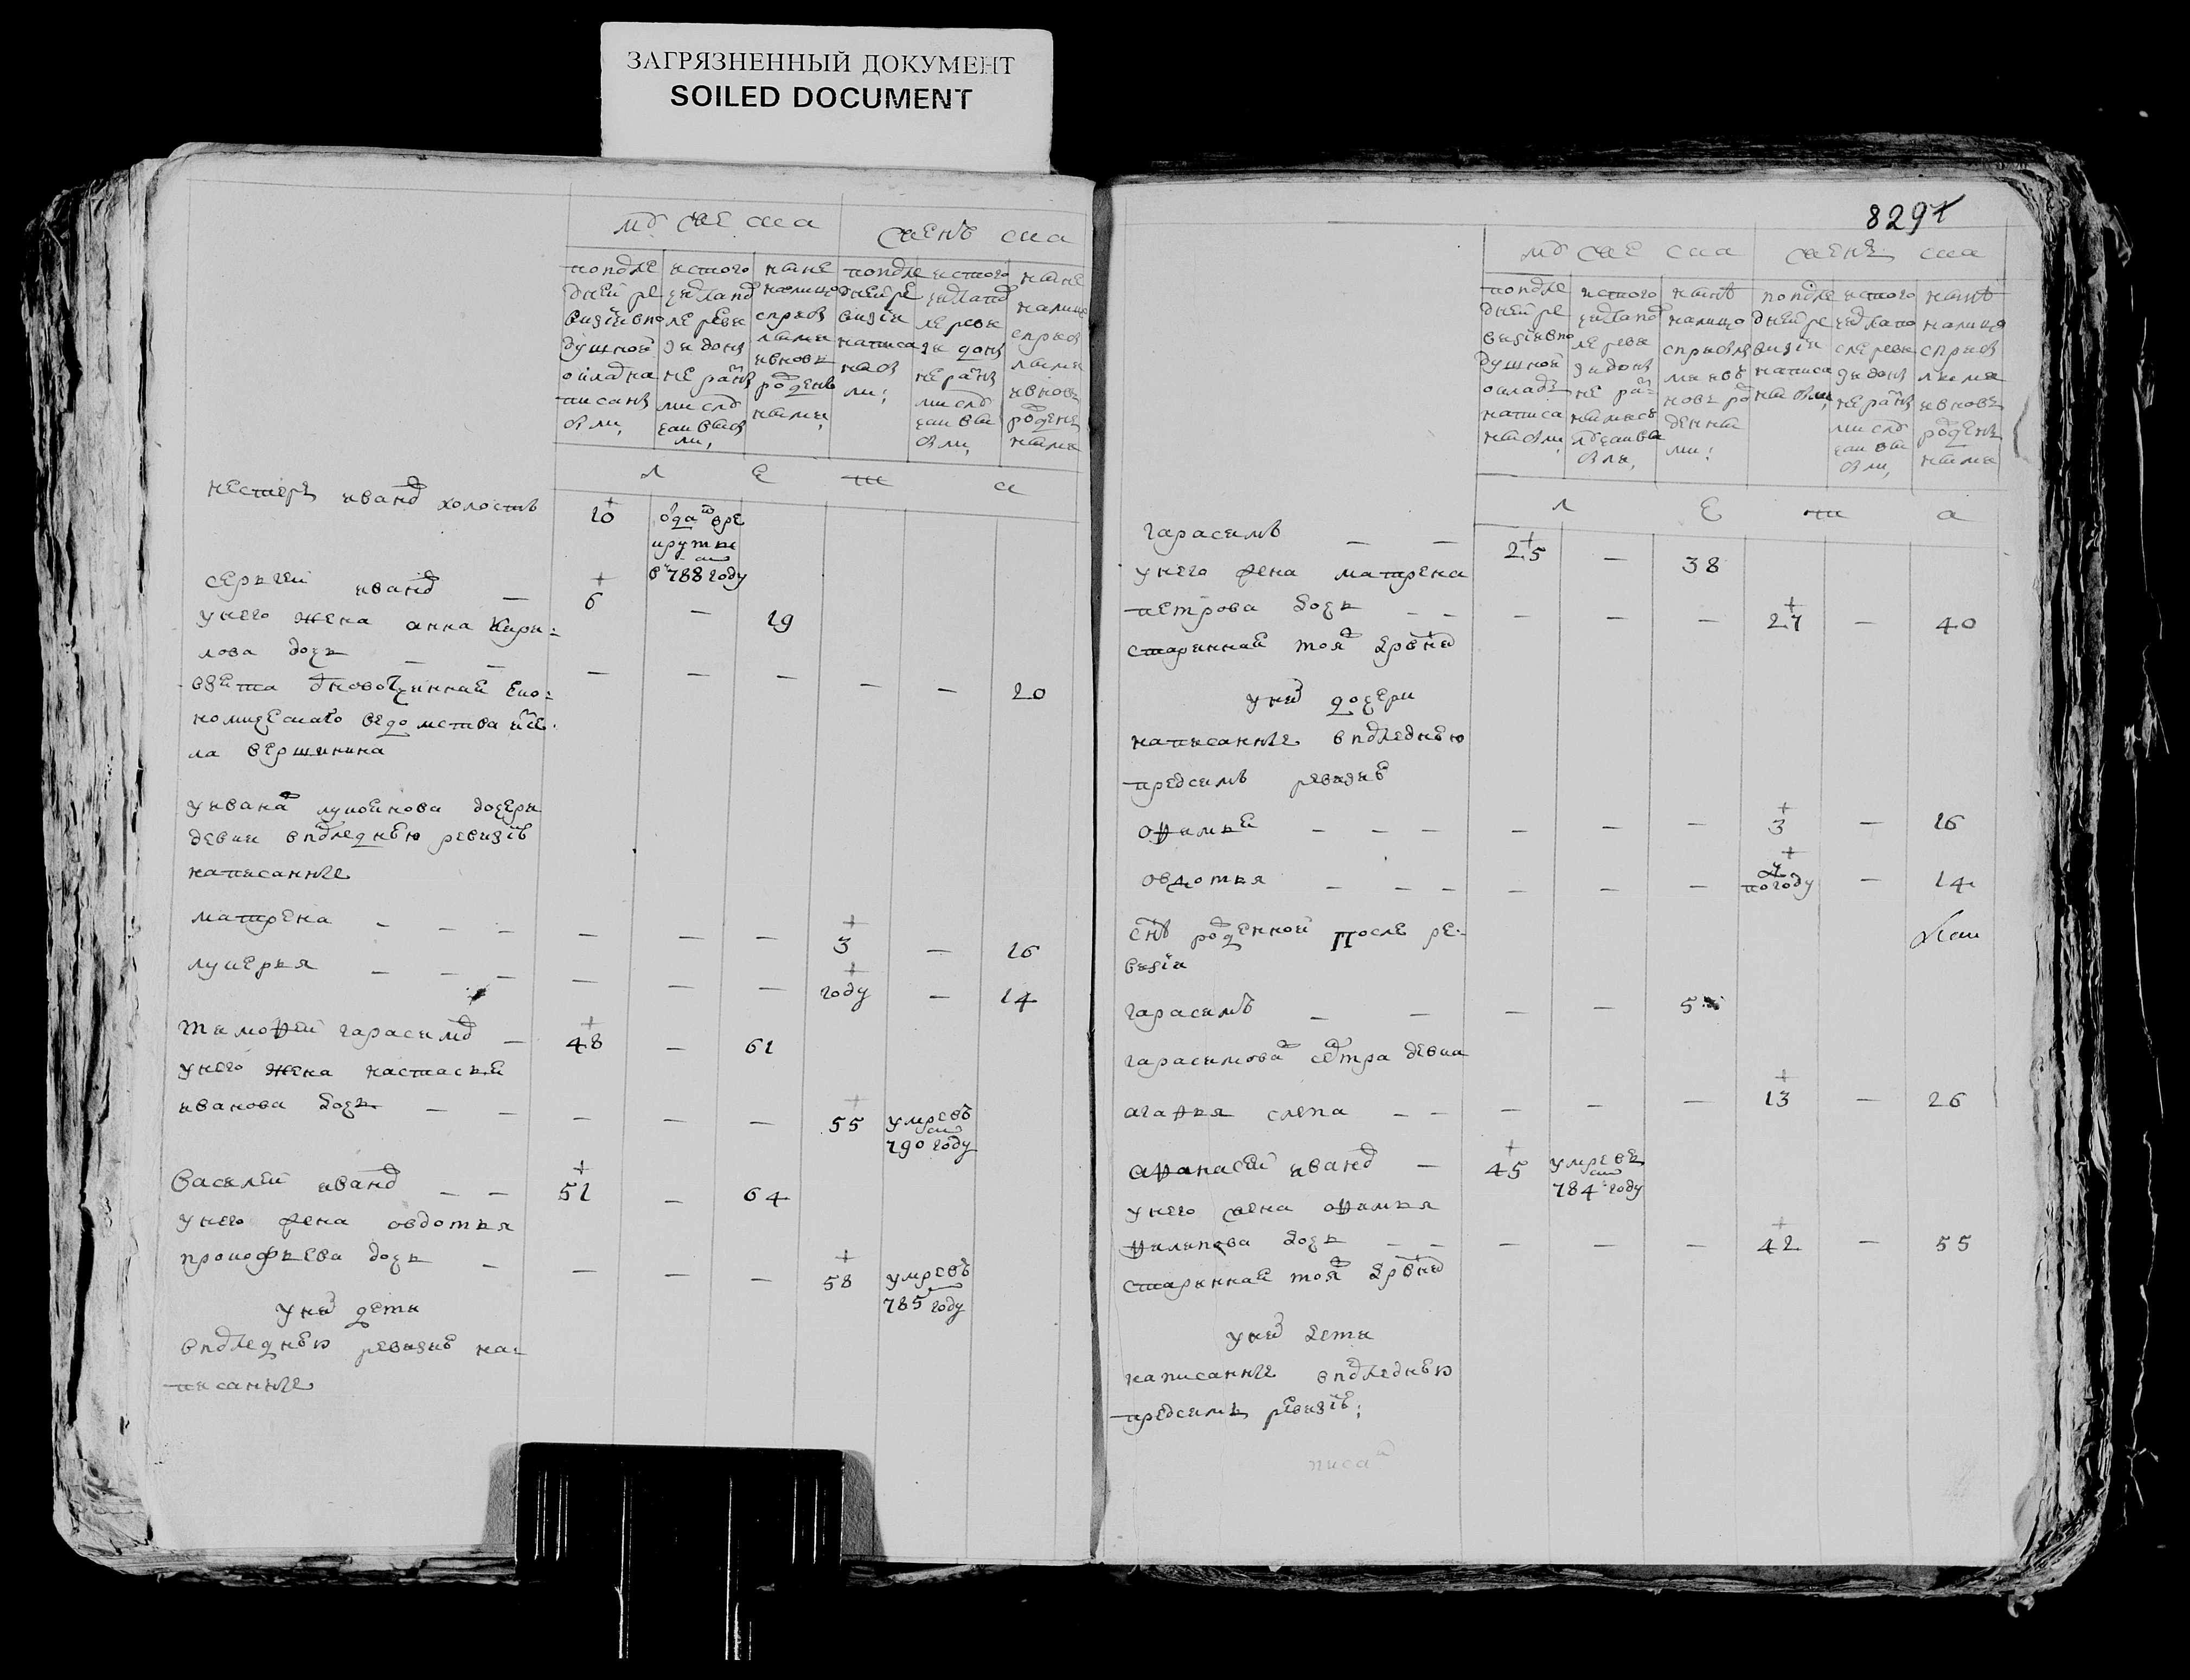 ЗАГРЯЗНЕННЫЙ ДОКУМЕНТ
SOILED DOCUMENT
мужеска
женска
попосле
дней ре
визіи впо
душной
оклад на
писаны
были,
ис того
числа пос
ле реви
зи до ны
не разны
ми слу
чаи выбы
ли,
ныне
налицо
с прибы
лыми
и вновь
рожден
ными,
попосле
дней ре
визіи
написа
ны бы
ли,
ис того
числа пос
ле реви
зи до ны
не разны
ми слу
чаи вы
были,
ныне
налицо
с прибы
лыми
и вновь
рожден
ными
л е т а
нестеръ иванов холостъ
10
отдан в ре
круты
в 788 году
сергей иванов —
6 — 19
у него жена анна кири=
лова дочь — —
— — — — — 20
взята дновотчинная еко=
номическаго ведомства исе
ла вершинина
у ивана лукоянова дочери
девки в последнюю ревизіи
написанные
матрена — — —
— — — 3 — 16
лукерья — — —
— — — году — 14
тимофей гарасимов —
48 — 61
у него жена настасья
иванова дочь — —
— — — 55 умре въ
790 году
василей иванов — —
51 — 64
у него жена овдотья
прокофьева дочь —
— — — 58 умре въ
785 году
у них дети
в последнюю ревизию на=
писанные
829
мужеска
женска
попосле
дней ре
визіи впо
душной
окладъ
написа
ны были,
ис того
числа пос
ле реви
зи до ны
не раз
ными слу
чаи вы
были,
ныне
налицо
с прибылы
ми и въ
новь рож
денны
ми,
попосле
дней ре
визіи
написа
ны были,
ис того
числа по
сле реви
зи до ны
не разны
ми слу
чаи вы
были,
ныне
налицо
с прибы
лыми
и вновь
рожден
ными
л е т а
гарасимъ — —
25 — 38
у него жена матрена
петрова дочь — —
— — — 27 — 40
старинная тояж деревни
у них дочери
написанные в последнюю
предсимъ ревизию
офимья — — —
— — — 3 — 16
овдотья — — —
— — — полгоду — 14
снъ рожденной после ре=
визіи
гарасимъ — —
— — 5
гарасимова сестра девка
агафья слепа — —
— — — 13 — 26
афанасей иванов —
45 умре въ
784 году
у него жена офимья
филипова дочь — —
— — — 42 — 55
старинная тояж деревни
у них дети
написанные в последнюю
предсимъ ревизіи;